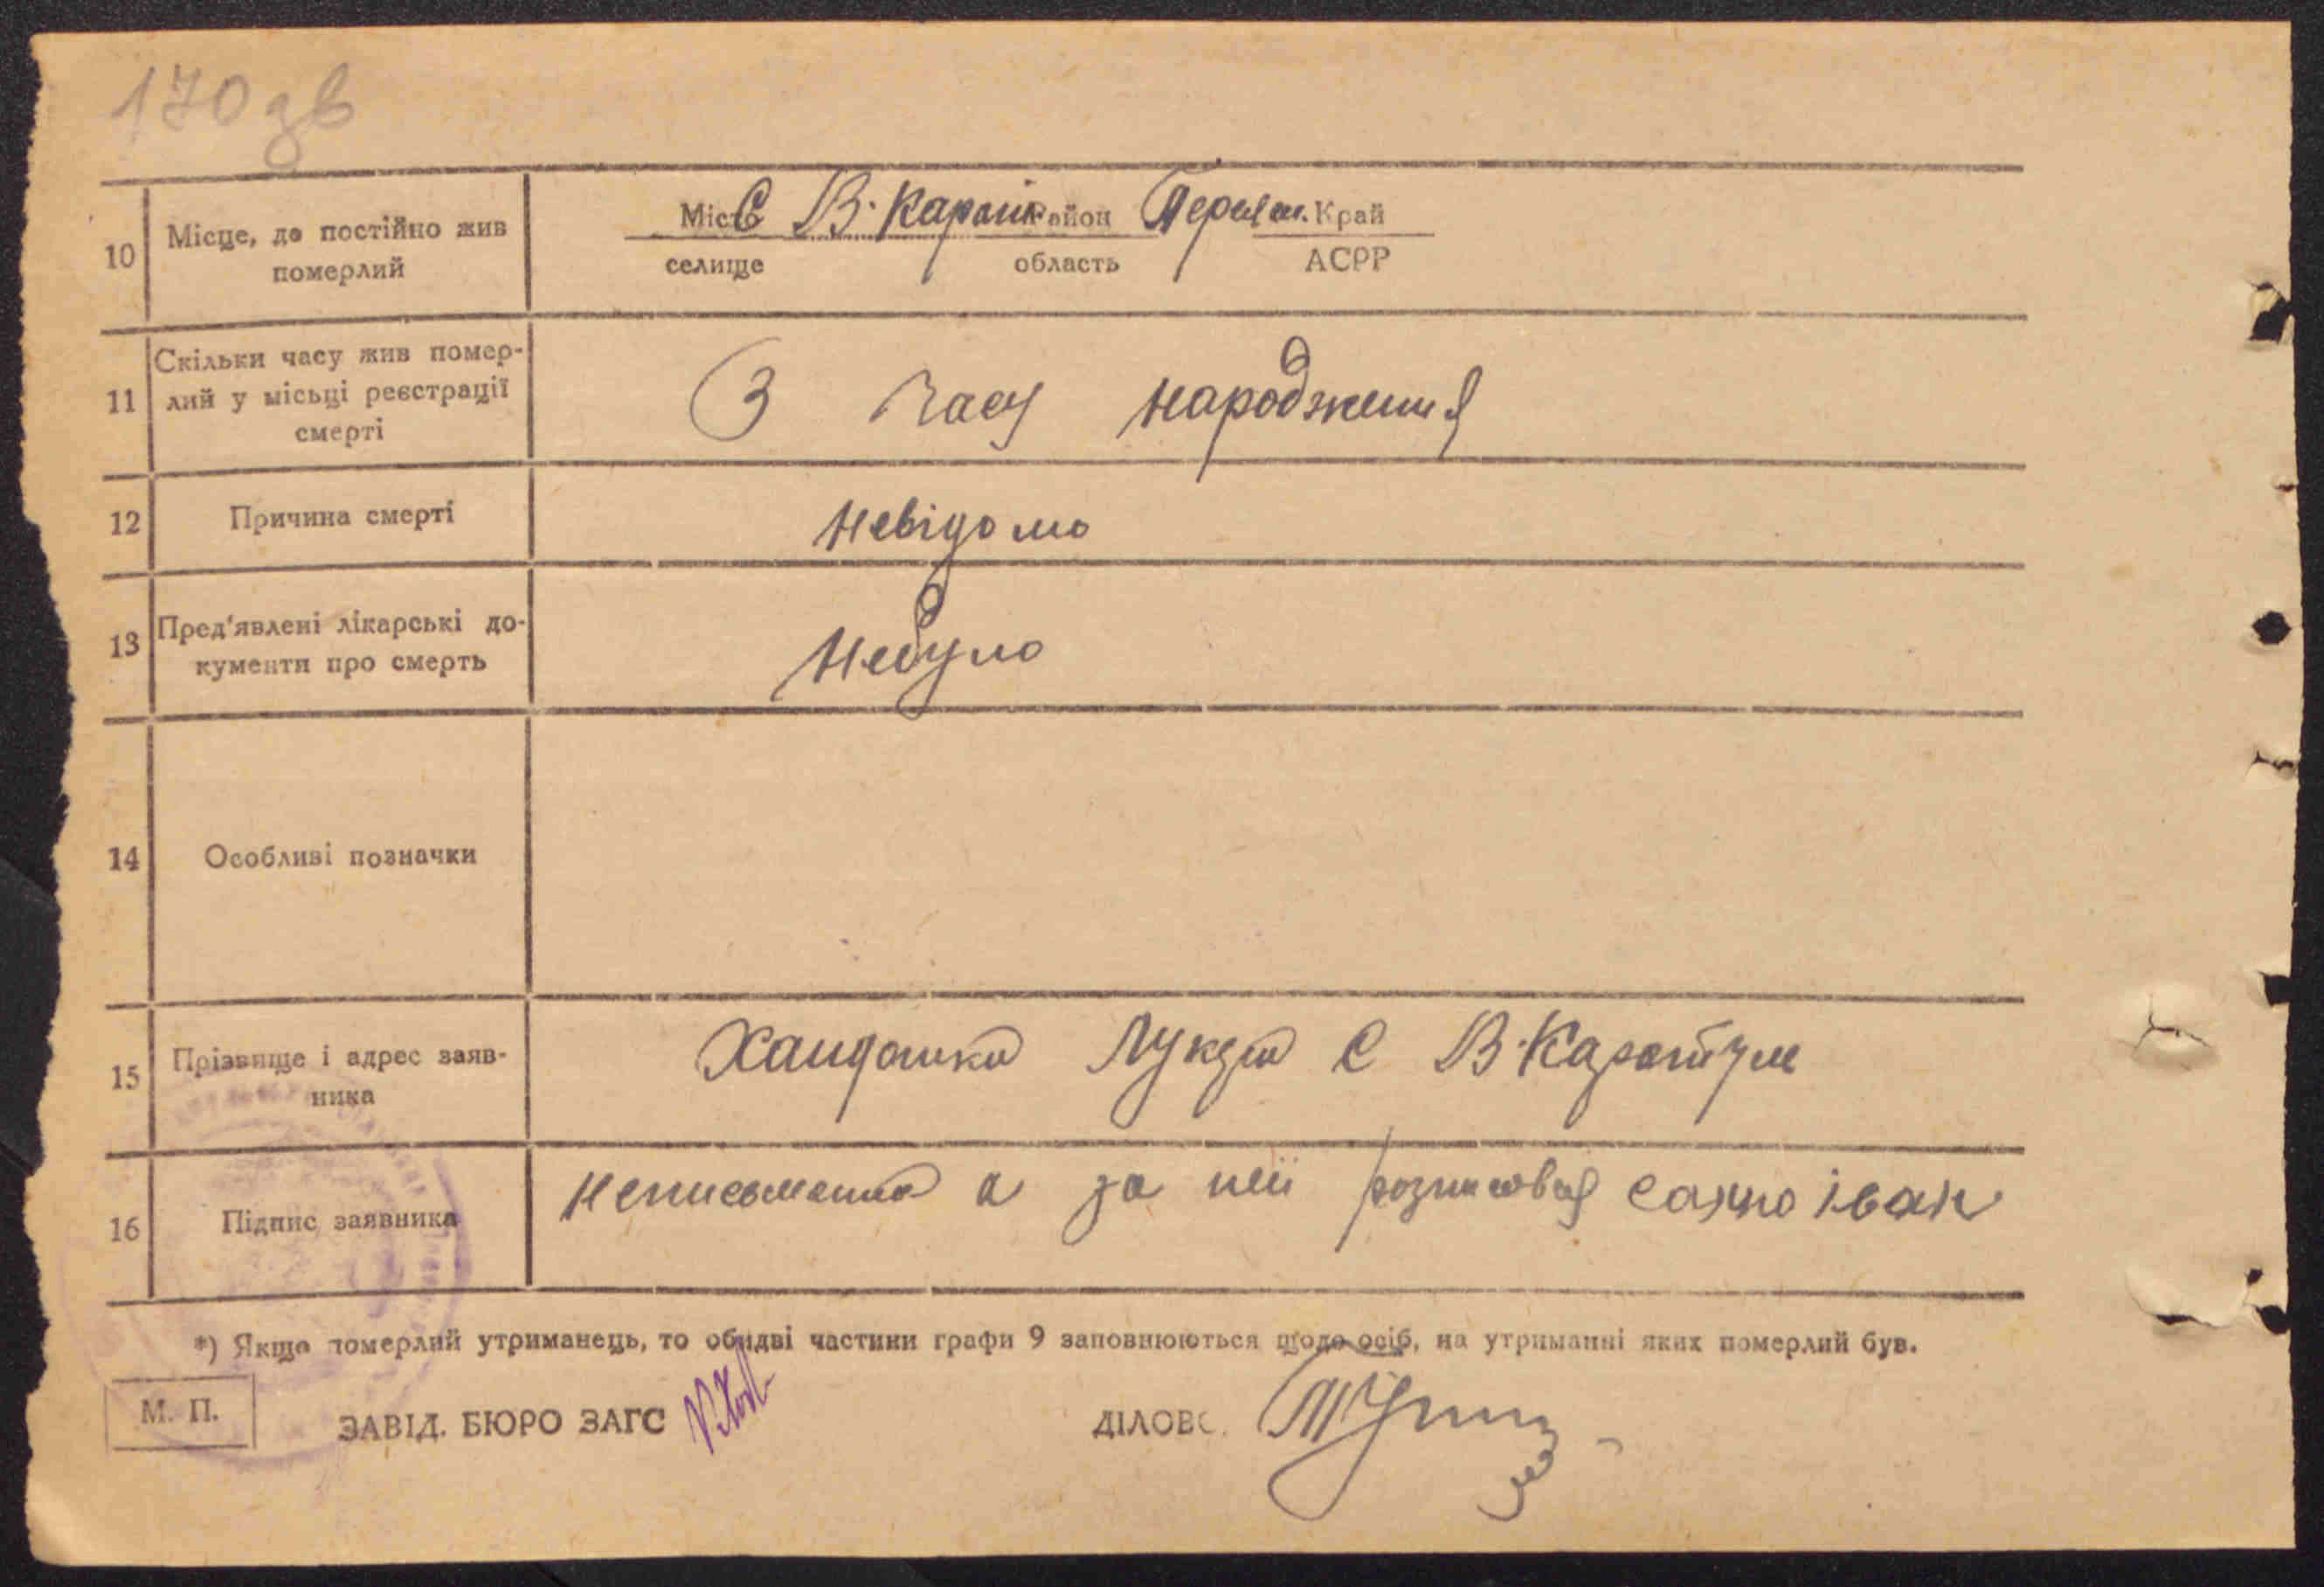 170 зв
10 Місце, де постійно жив померлий
Місто С В. Карат. Район Переясл. Край
селище область АСРР
11 Скільки часу жив помер-
лий у місьці реєстрації
смерті
З часу народження
12 Причина смерті
Невідомо
13 Пред'явлені лікарські до-
кументи про смерть
Небуло
14 Особливі позначки
15 Прізвище і адрес заяв-
ника
Хандошка С В. Каратул
16 Підпис заявника
Неписьменна а за неї розписався Сахно Іван
*) Якщо померлий утриманець, то обидві частини графи 9 заповнюються щодо осіб, на утриманні яких померлий був.
М. П.
ЗАВІД. БЮРО ЗАГС
ДІЛОВ.